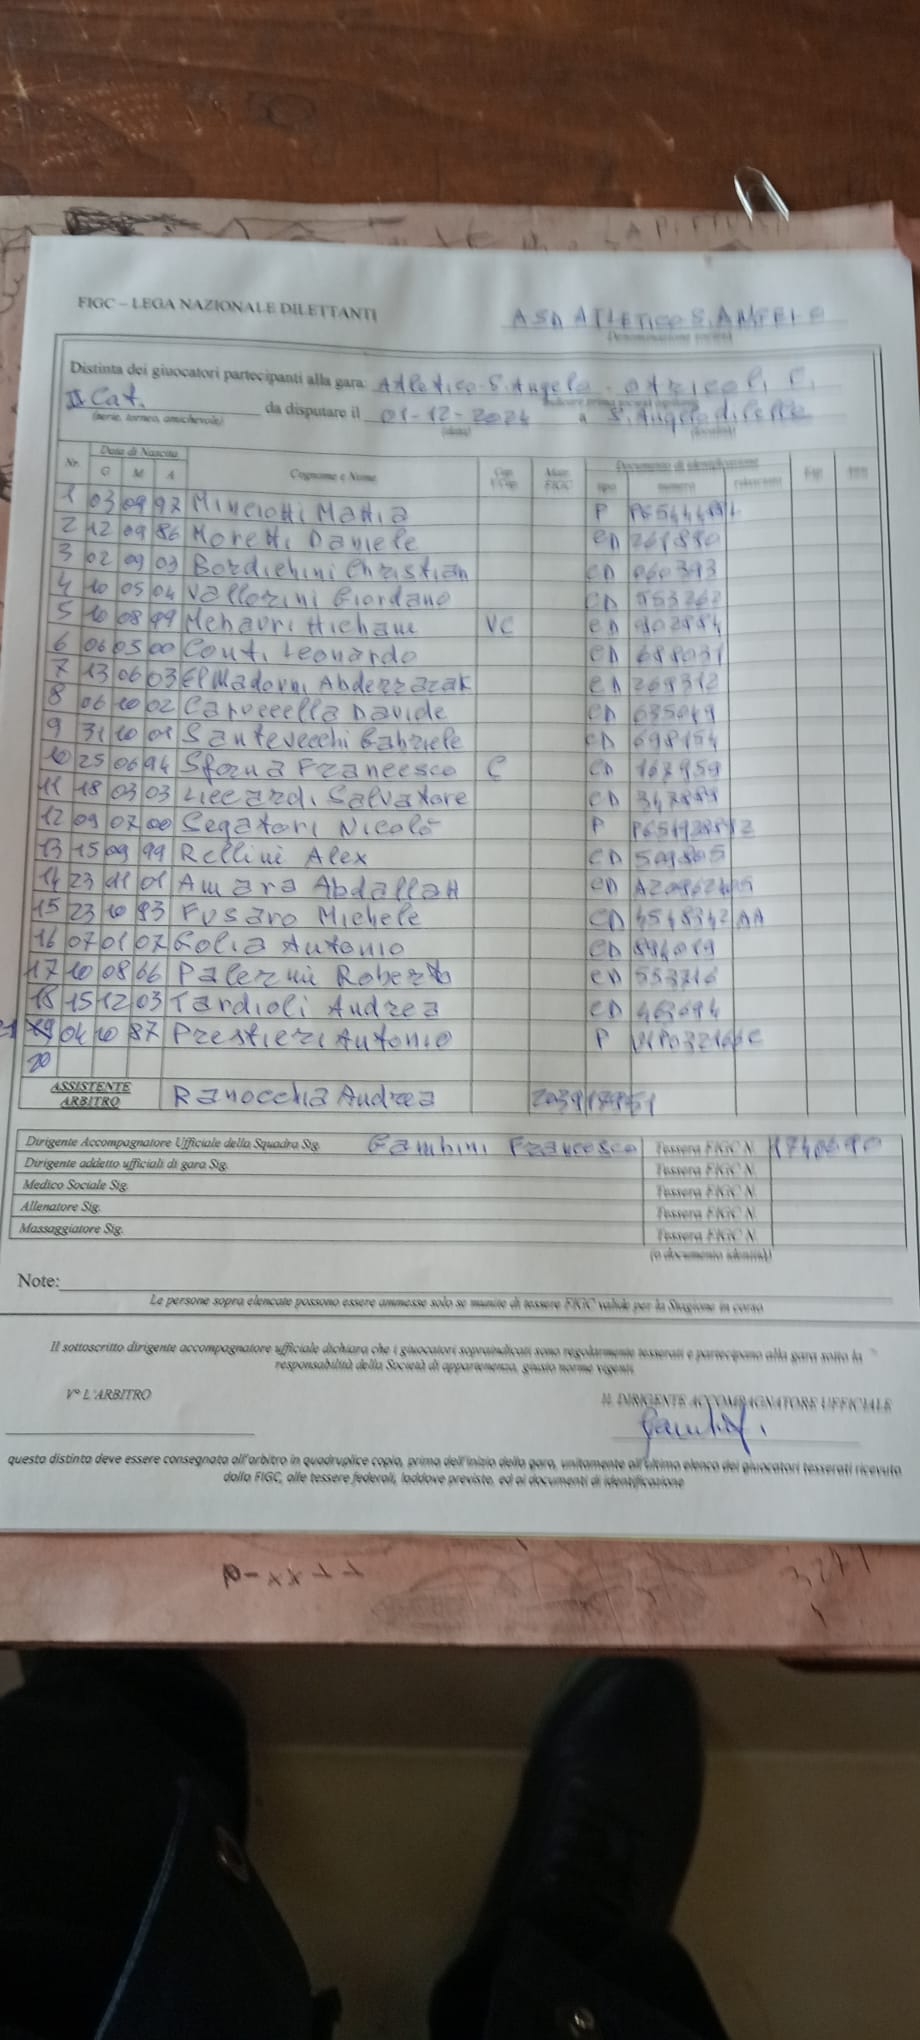 FIGC – LEGA NAZIONALE DILETTANTI
ASD ATLETICO S. ANGELO
Denominazione società
Distinta dei giuocatori partecipanti alla gara: Atletico S. Angelo - Otricoli C.
II Cat. da disputare il 01-12-2024 a S. Angelo di Celle
(serie, torneo, amichevole) (data) (località)
Nr. Data di Nascita Cognome e Nome Cap. V.Cap. Matr. FIGC Documento di identificazione
G M A tipo numero rilasciato
1 03 09 97 Minciotti Mattia P
2 12 09 86 Moretti Daniele CD 261880
3 02 09 03 Bordichini Christian CD 060393
4 10 05 04 Vallorini Giordano CD 553262
5 10 08 99 Menaouri Hicham VC CD
6 06 05 00 Conti Leonardo CD 688031
7 13 06 03 El Madovni Abderrazak CD 269312
8 06 10 02 Caruccella Davide CD 635049
9 31 10 01 Santevecchi Gabriele CD 698154
10 25 06 94 Sforna Francesco C CD 167959
11 18 03 03 Liccardi Salvatore CD
12 09 07 00 Segatori Nicolò P
13 15 09 99 Rellini Alex CD
14 23 01 01 Amara Abdallah CD
15 23 10 83 Fusaro Michele CD
16 07 01 07 Golia Antonio CD
17 10 08 66 Palermi Roberto CD 553716
18 15 12 03 Tardioli Andrea CD 463694
21 04 10 87 Prestieri Antonio P
20
ASSISTENTE ARBITRO Ranocchia Andrea
Dirigente Accompagnatore Ufficiale della Squadra Sig. Gambini Francesco Tessera FIGC N.
Dirigente addetto ufficiali di gara Sig. Tessera FIGC N.
Medico Sociale Sig. Tessera FIGC N.
Allenatore Sig. Tessera FIGC N.
Massaggiatore Sig. Tessera FIGC N.
(o documento identità)
Note:
Le persone sopra elencate possono essere ammesse solo se munite di tessere FIGC valide per la Stagione in corso
Il sottoscritto dirigente accompagnatore ufficiale dichiara che i giuocatori sopraindicati sono regolarmente tesserati e partecipano alla gara sotto la
responsabilità della Società di appartenenza, giusto norme vigenti
V° L'ARBITRO
IL DIRIGENTE ACCOMPAGNATORE UFFICIALE
questa distinta deve essere consegnata all'arbitro in quadruplice copia, prima dell'inizio della gara, unitamente all'ultimo elenco dei giuocatori tesserati ricevuto
dalla FIGC, alle tessere federali, laddove previste, ed ai documenti di identificazione